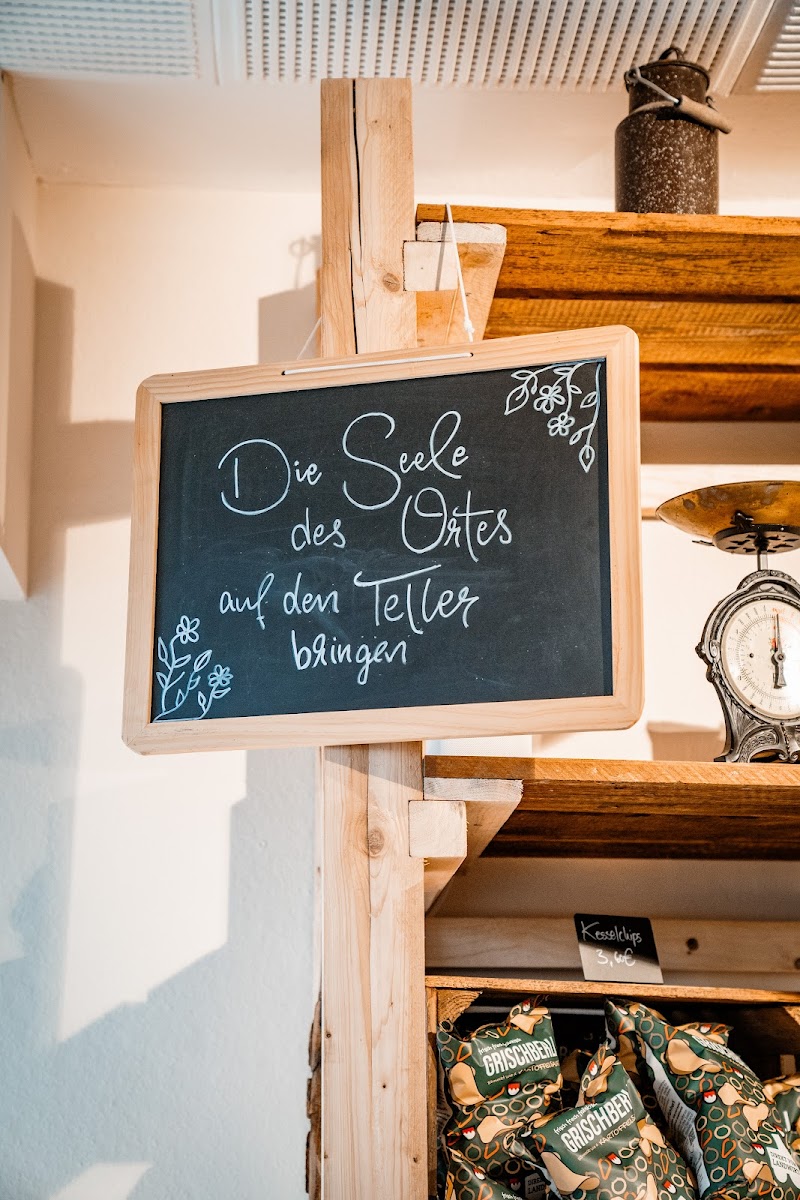 Die Seele
des Ortes
auf den Teller
bringen
Kesselchips
3,60€
GRISCHBERL
GRISCHBERL